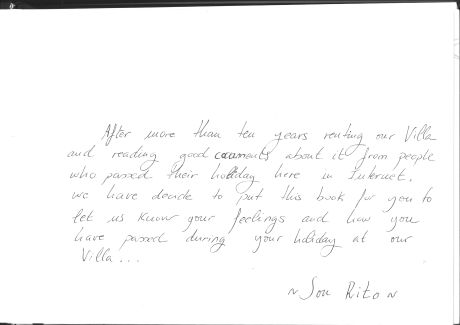 After more than ten years renting our Villa
and reading good comments about it from people
who passed their holiday here in Internet.
we have decide to put this book for you to
let us know your feelings and how you
have passed during your holiday at our
Villa...
~ Son Rito ~